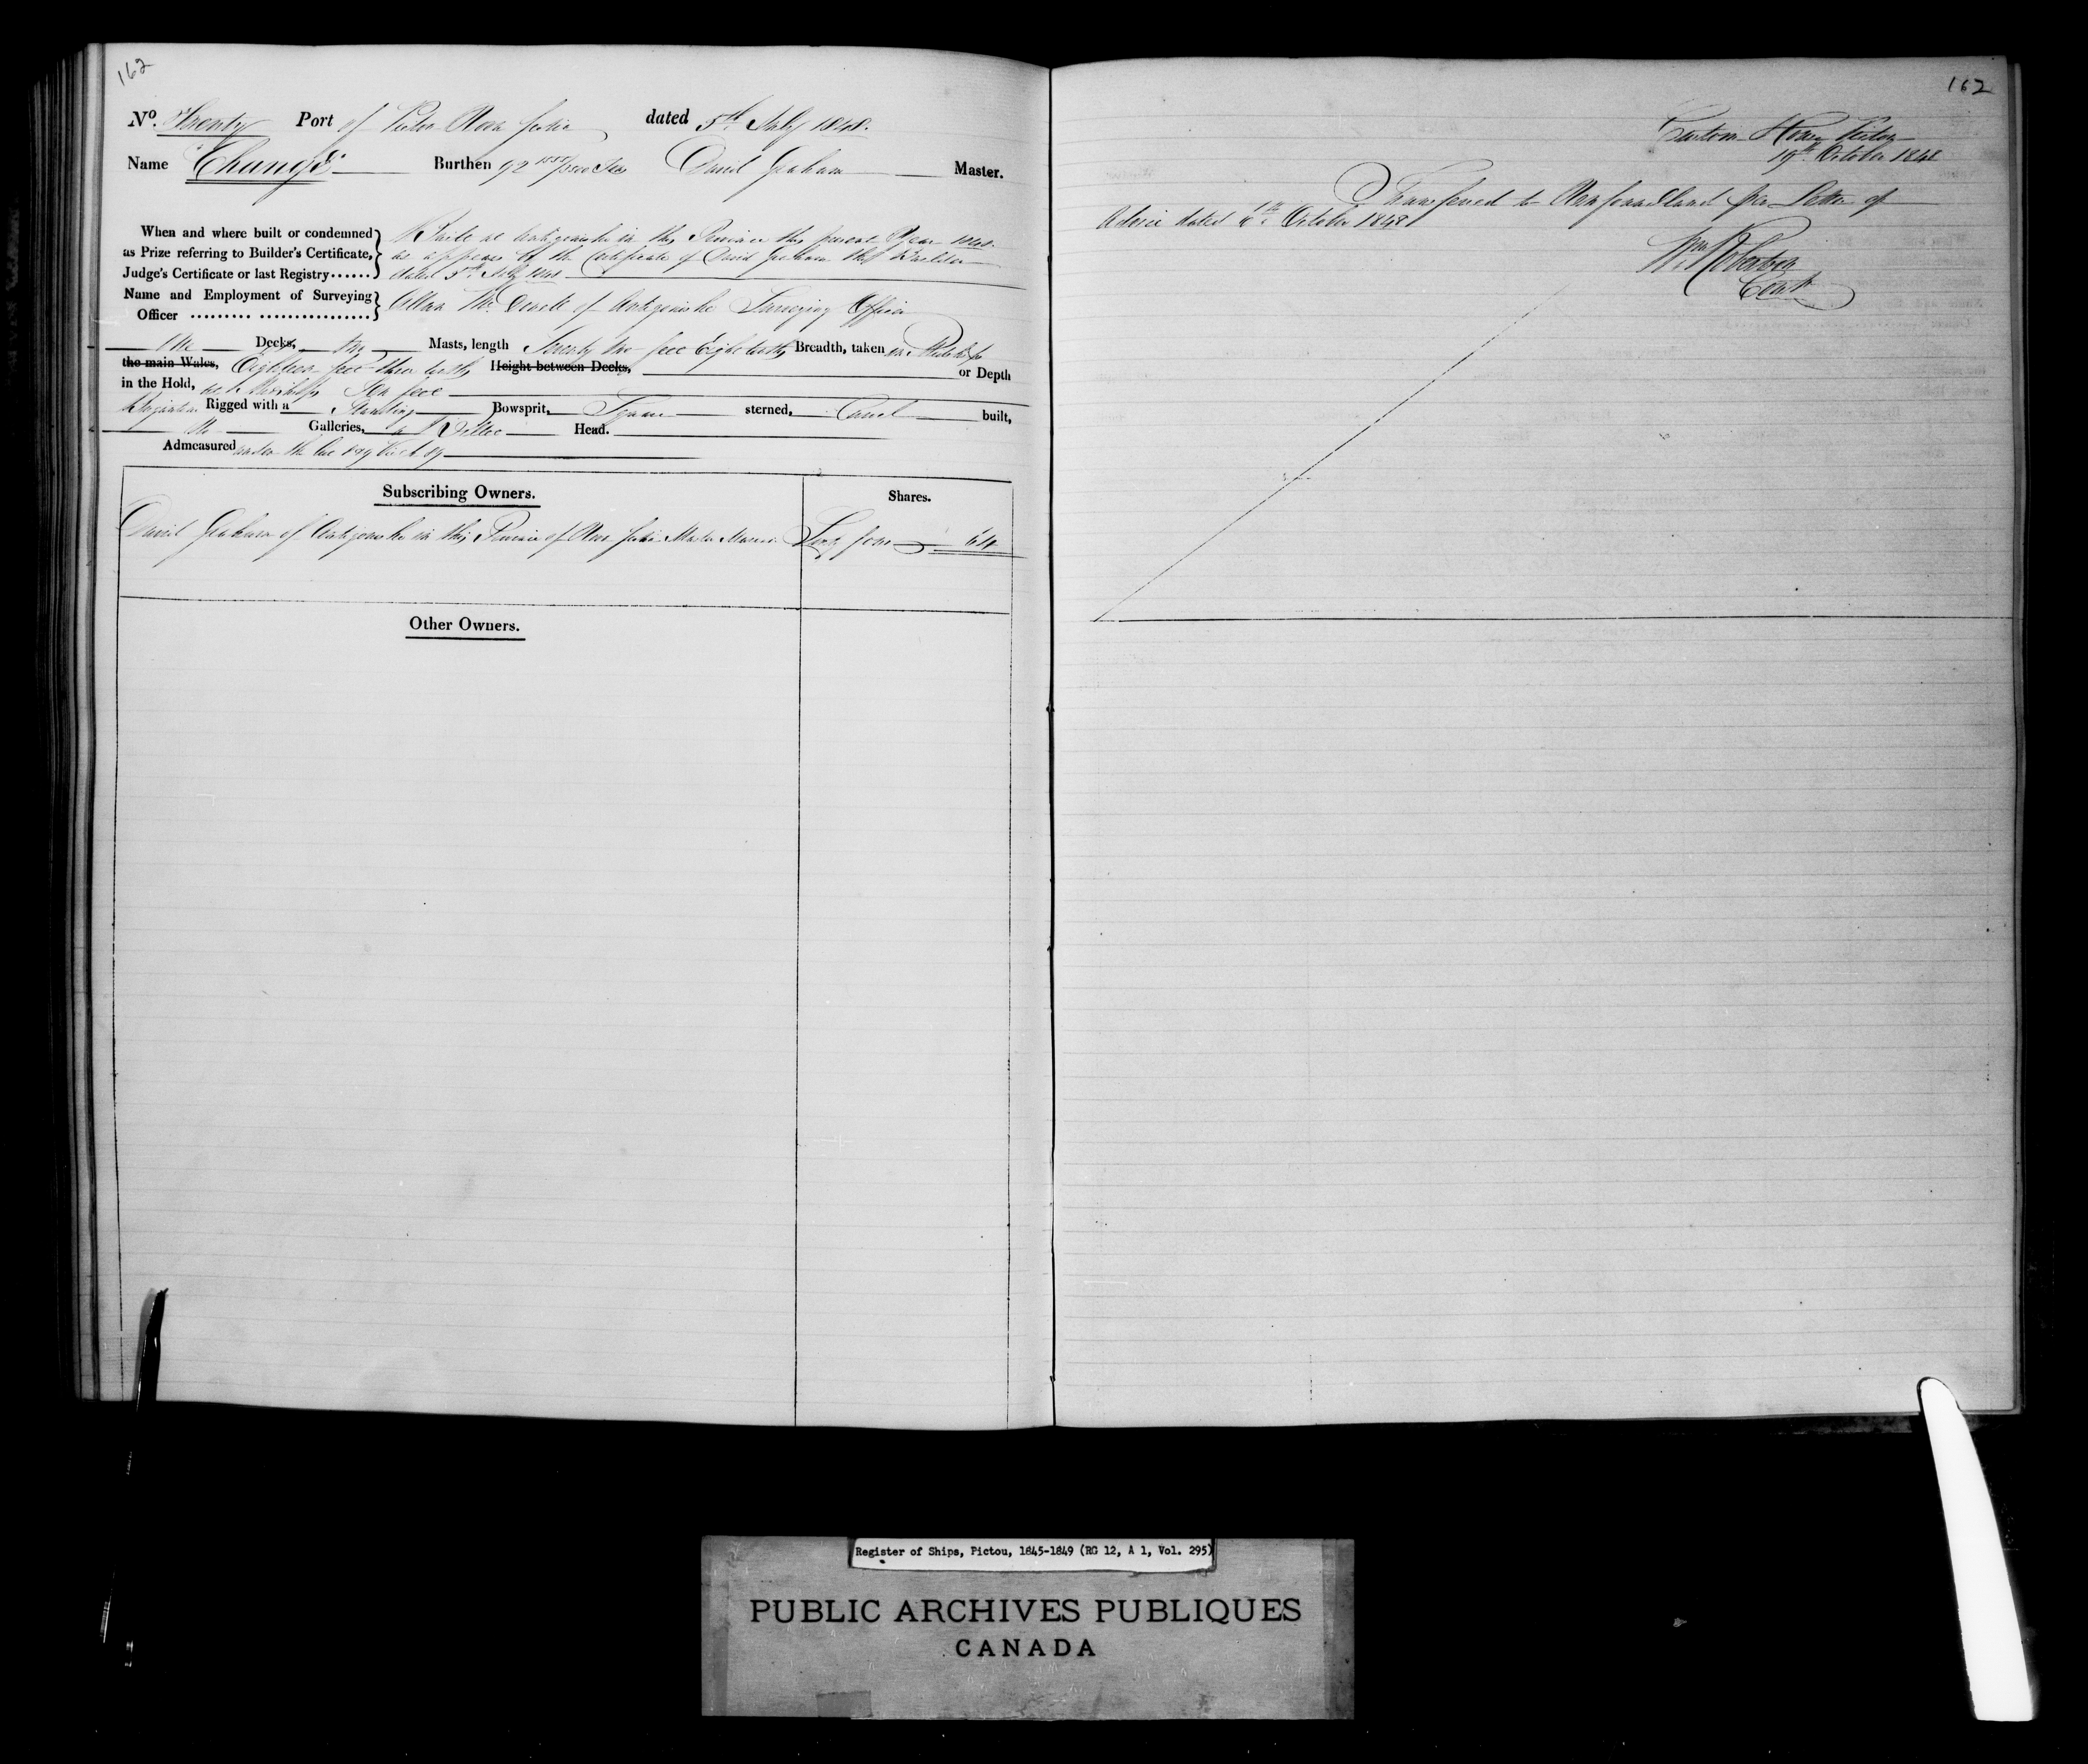 162
No. Twenty Port of Pictou Nova Scotia dated 5th July 1848.
Name "Change" Burthen 92 /3500 Tons David Graham Master.
When and where built or condemned
as Prize referring to Builder's Certificate,
Judge's Certificate or last Registry......
Built at Antigonishe in this Province this present Year 1848.
as appears by the Certificate of David Graham the Builder
dated 5th July 1848
Name and Employment of Surveying
Officer ......... .................
Allan Mc. of Antigonishe Surveying Officer
One Decks, Two Masts, length Seventy two feet Eight tenths Breadth, taken in Midships
the main Wales, Eighteen feet three tenths Height between Decks, or Depth
in the Hold, at Midships Ten feet
Rigged with a Standing Bowsprit, Square sterned, Carvel built,
No Galleries, a Billet Head.
Admeasured under the
Subscribing Owners. Shares.
David Graham of Antigonishe in this Province of Nova Scotia Master Mariner Sixty four 64
Other Owners.
162
Custom House Pictou
19th October 1848
Transferred to Newfoundland per Letter of
Advice dated October 1848
Wm Robertson
Register of Ships, Pictou, 1845-1849 (RG 12, A 1, Vol. 295)
PUBLIC ARCHIVES PUBLIQUES
CANADA